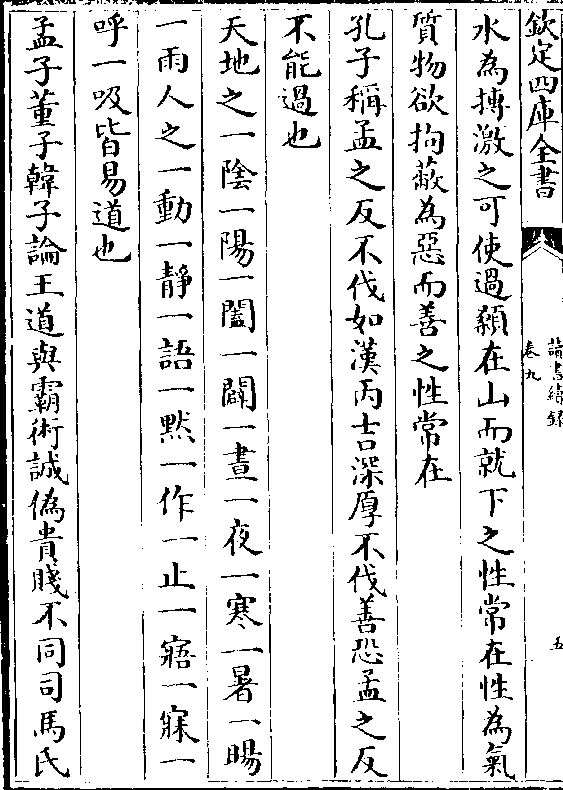 欽定四庫全書
讀書續錄
卷九
五
水為摶激之可使過顙在山而就下之性常在性為氣
質物欲拘蔽為惡而善之性常在
孔子稱孟之反不伐如漢丙吉深厚不伐善恐孟之反
不能過也
天地之一陰一陽一闔一闢一晝一夜一寒一暑一暘
一雨人之一動一靜一語一黙一作一止一寤一寐一
呼一吸皆易道也
孟子董子韓子論王道與霸術誠偽貴賤不同司馬氏